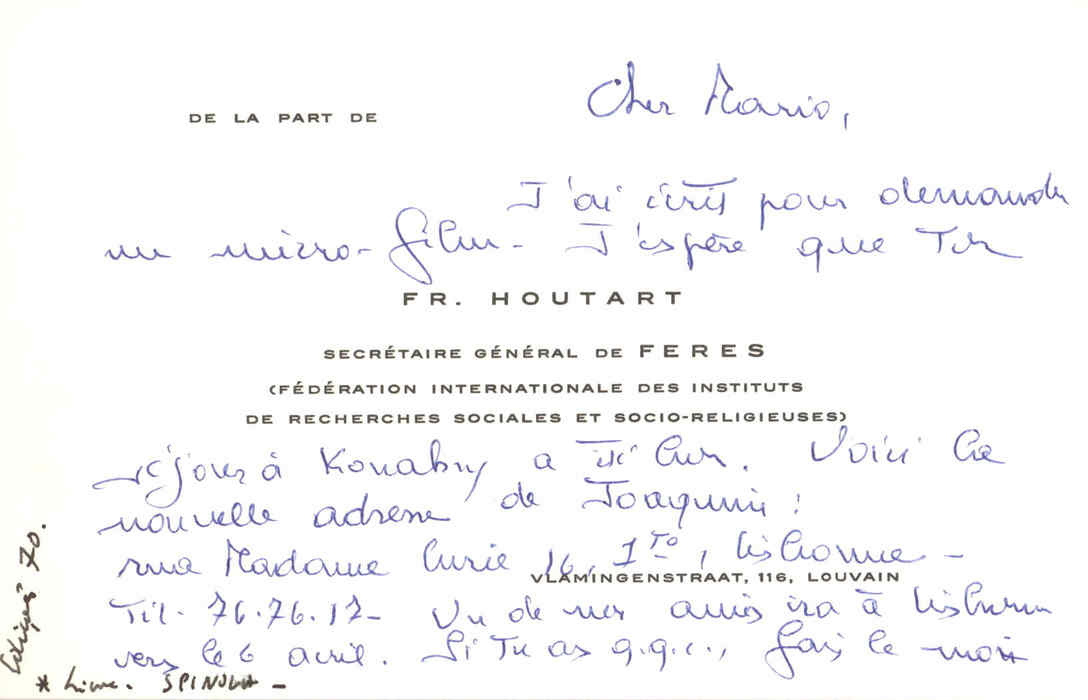 Cher Mario,
DE LA PART DE
J'ai écrit pour demander
un micro-film - J'espère que ton
FR. HOUTART
SECRÉTAIRE GÉNÉRAL DE FERES
(FÉDÉRATION INTERNATIONALE DES INSTITUTS
DE RECHERCHES SOCIALES ET SOCIO-RELIGIEUSES)
séjour à Konakry a été bon. Voici la
nouvelle adresse de Joaquim :
rua Madame Curie 16, 1to, Lisbonne -
VLAMINGENSTRAAT, 116, LOUVAIN
Tél. 76.76.17- Un de mes amis ira à Lisbonne
vers le 6 avril. Si tu as q.q.c., fais le moi
* Livre. SPINOLA -
70.